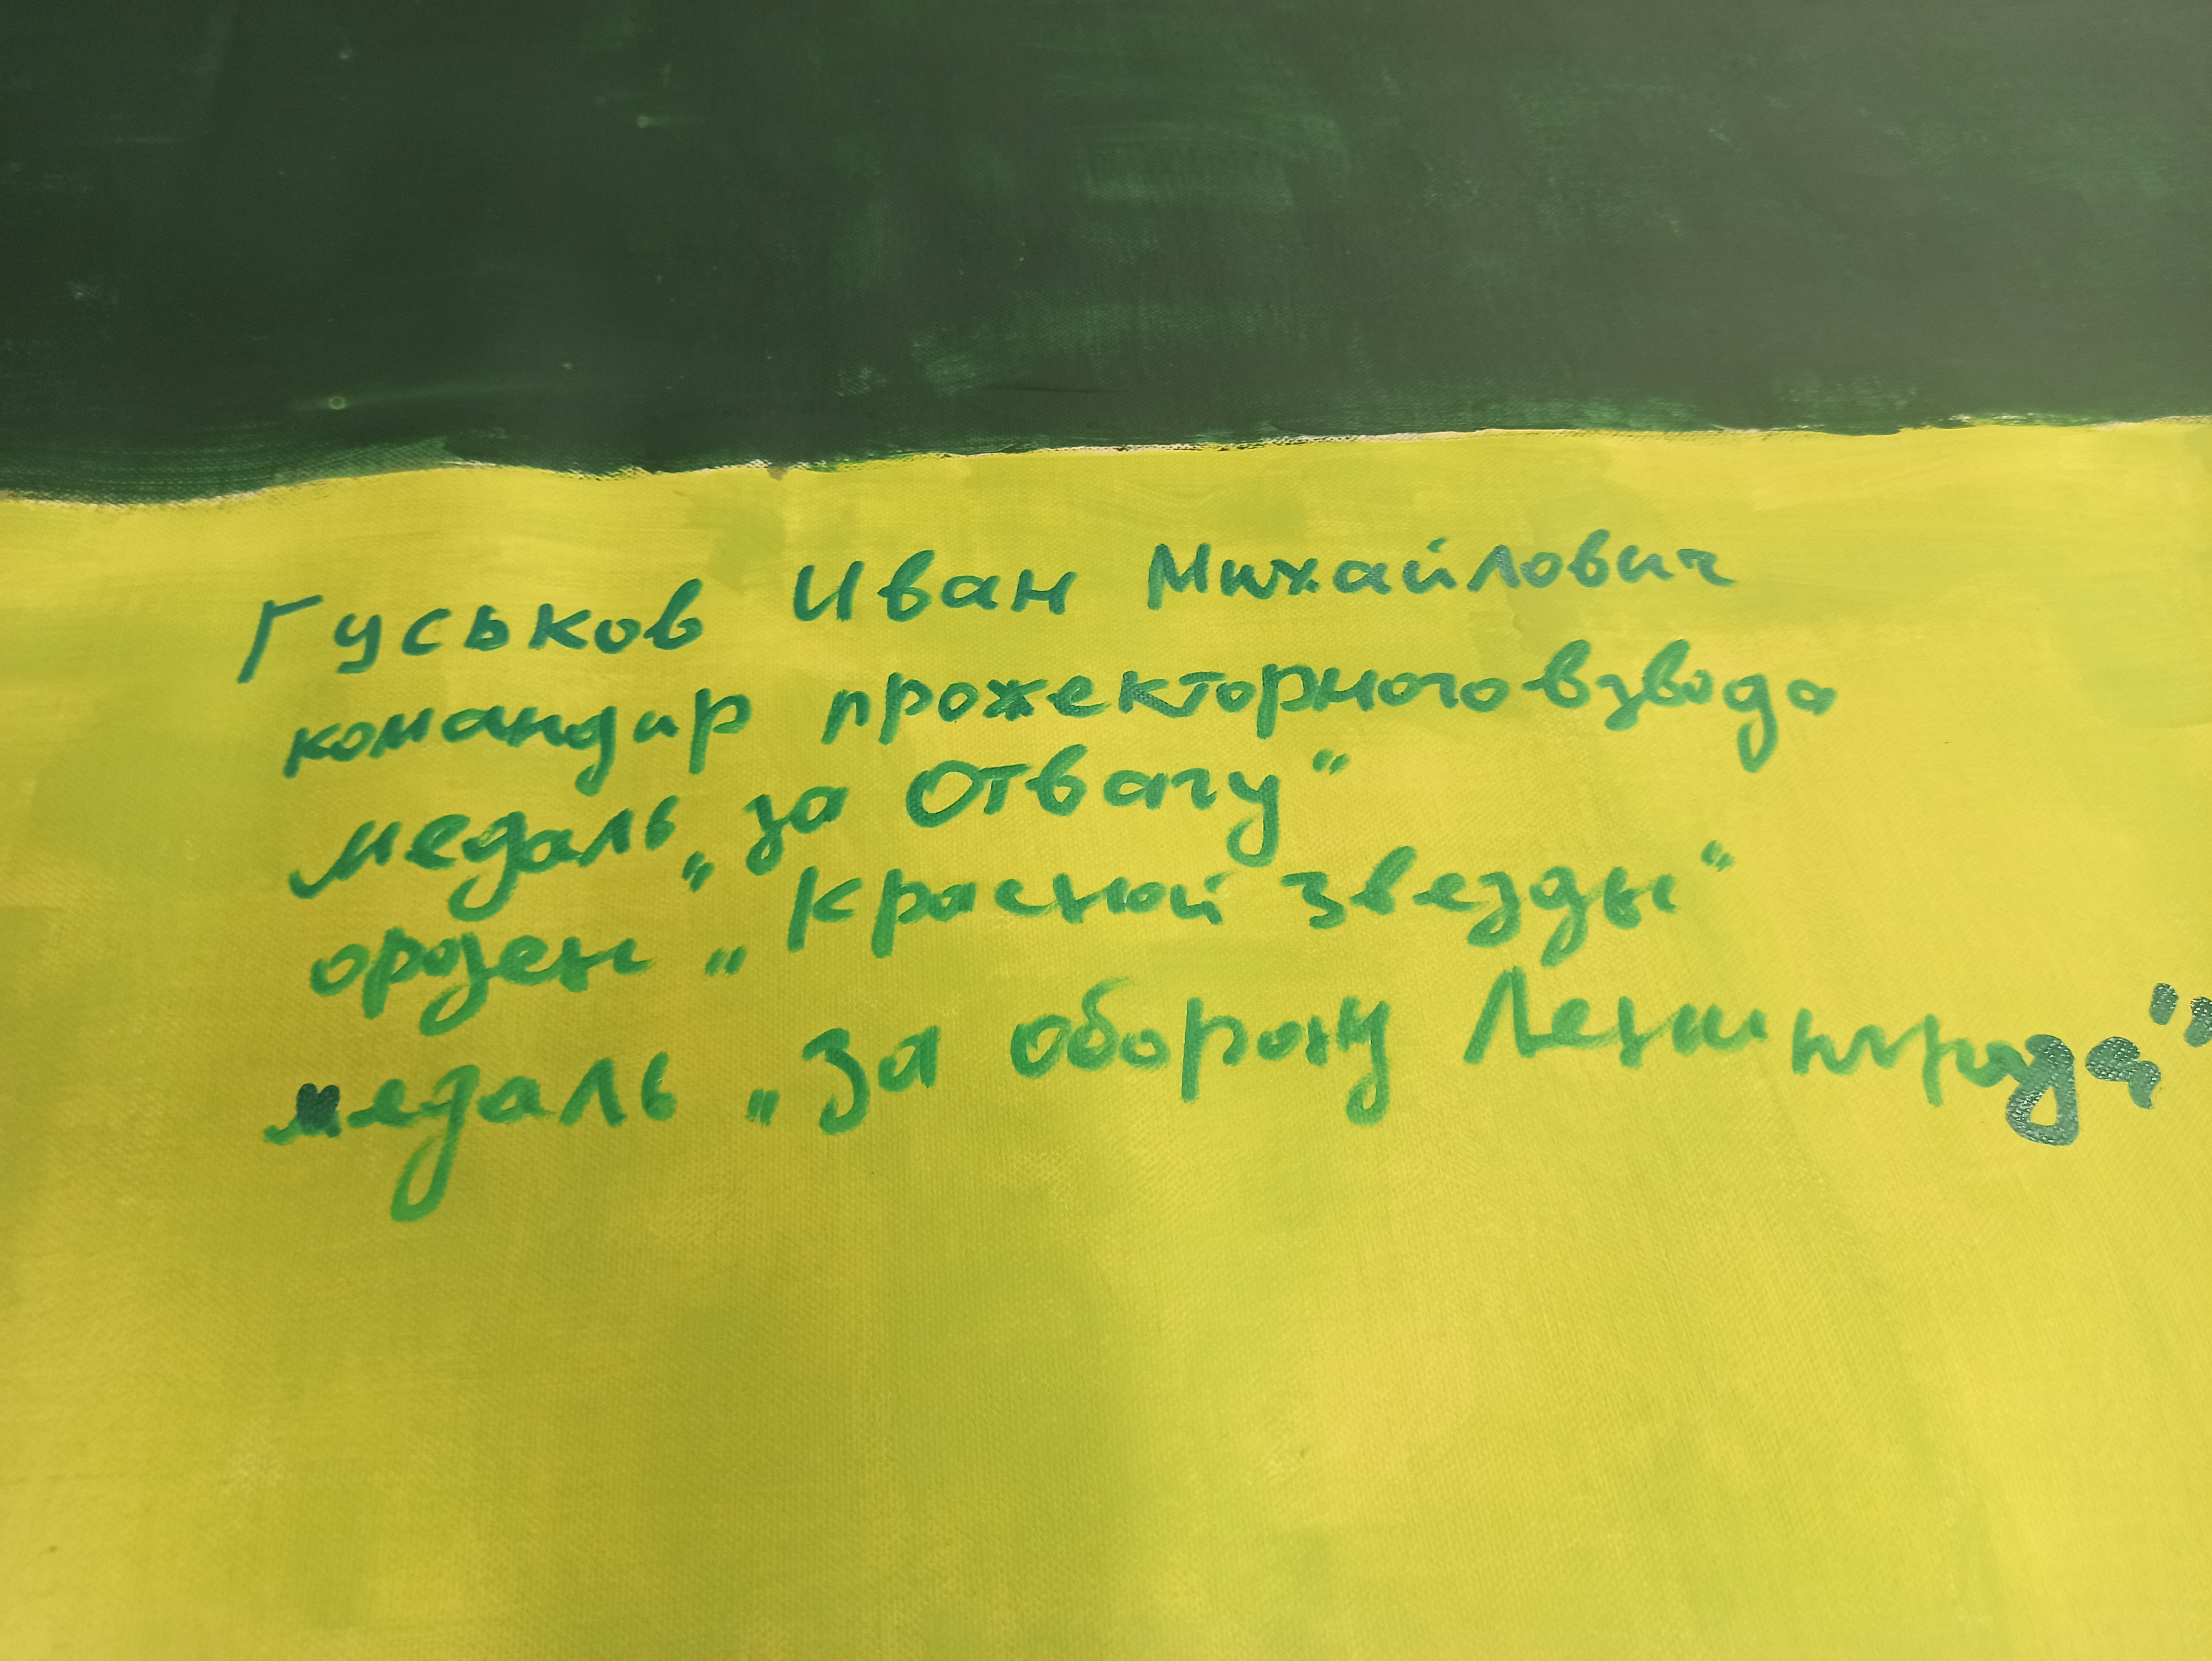 Гуськов Иван Михайлович
командир прожекторного взвода
медаль „за Отвагу“
орден „Красной звезды“
медаль „За оборону Ленинграда“